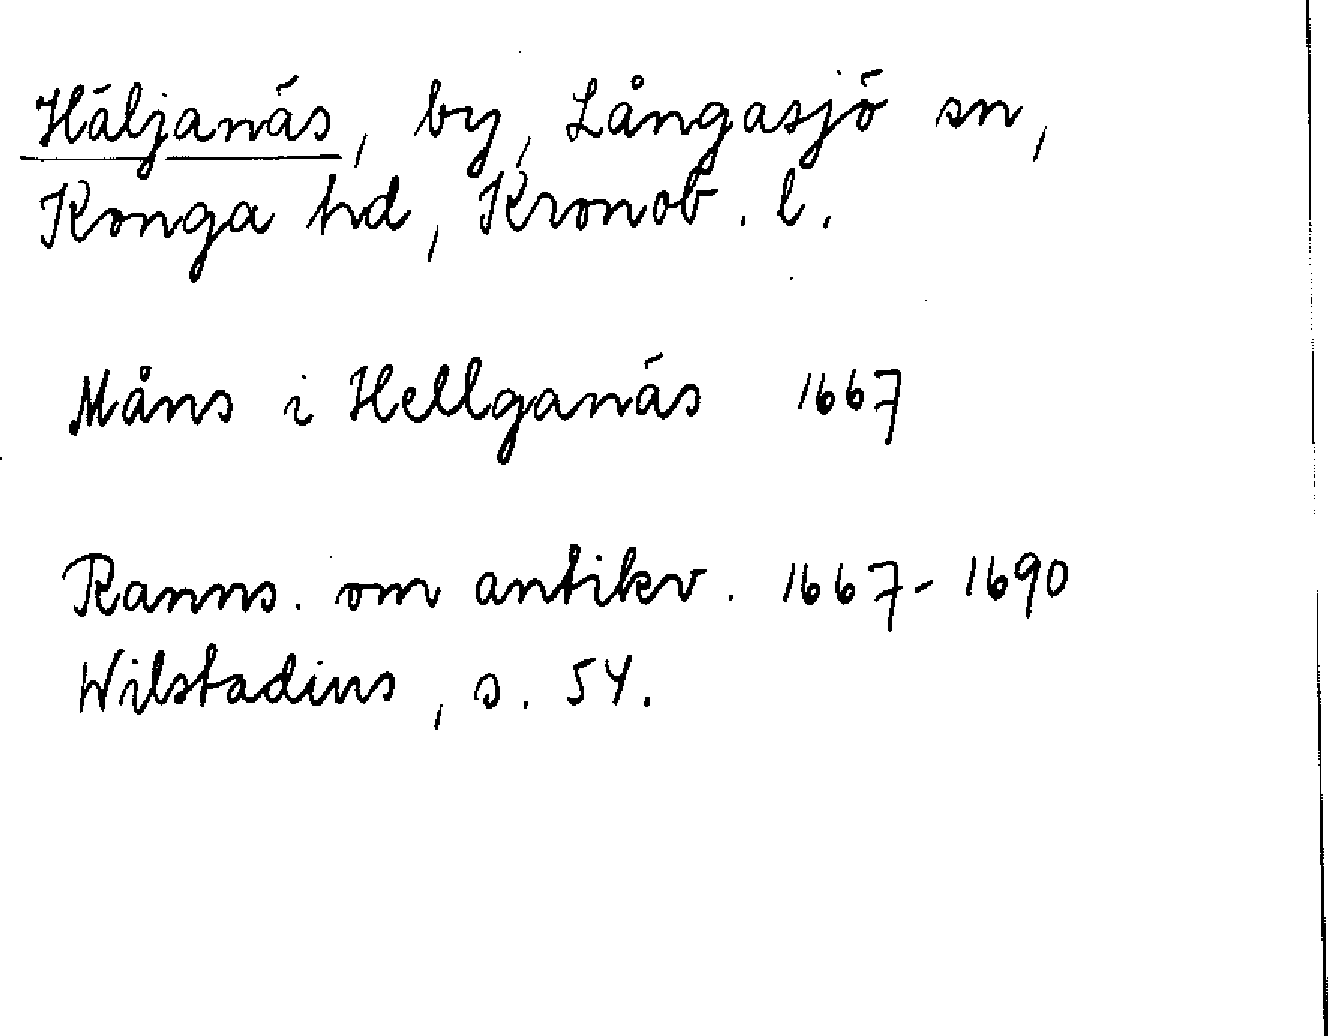 Häljanäs, by, Långasjö sn,
Konga hd, Kronob. l.
Måns i Hellganäs 1667
Ranns. om antikv. 1667-1690
Wilstadius, s. 54.